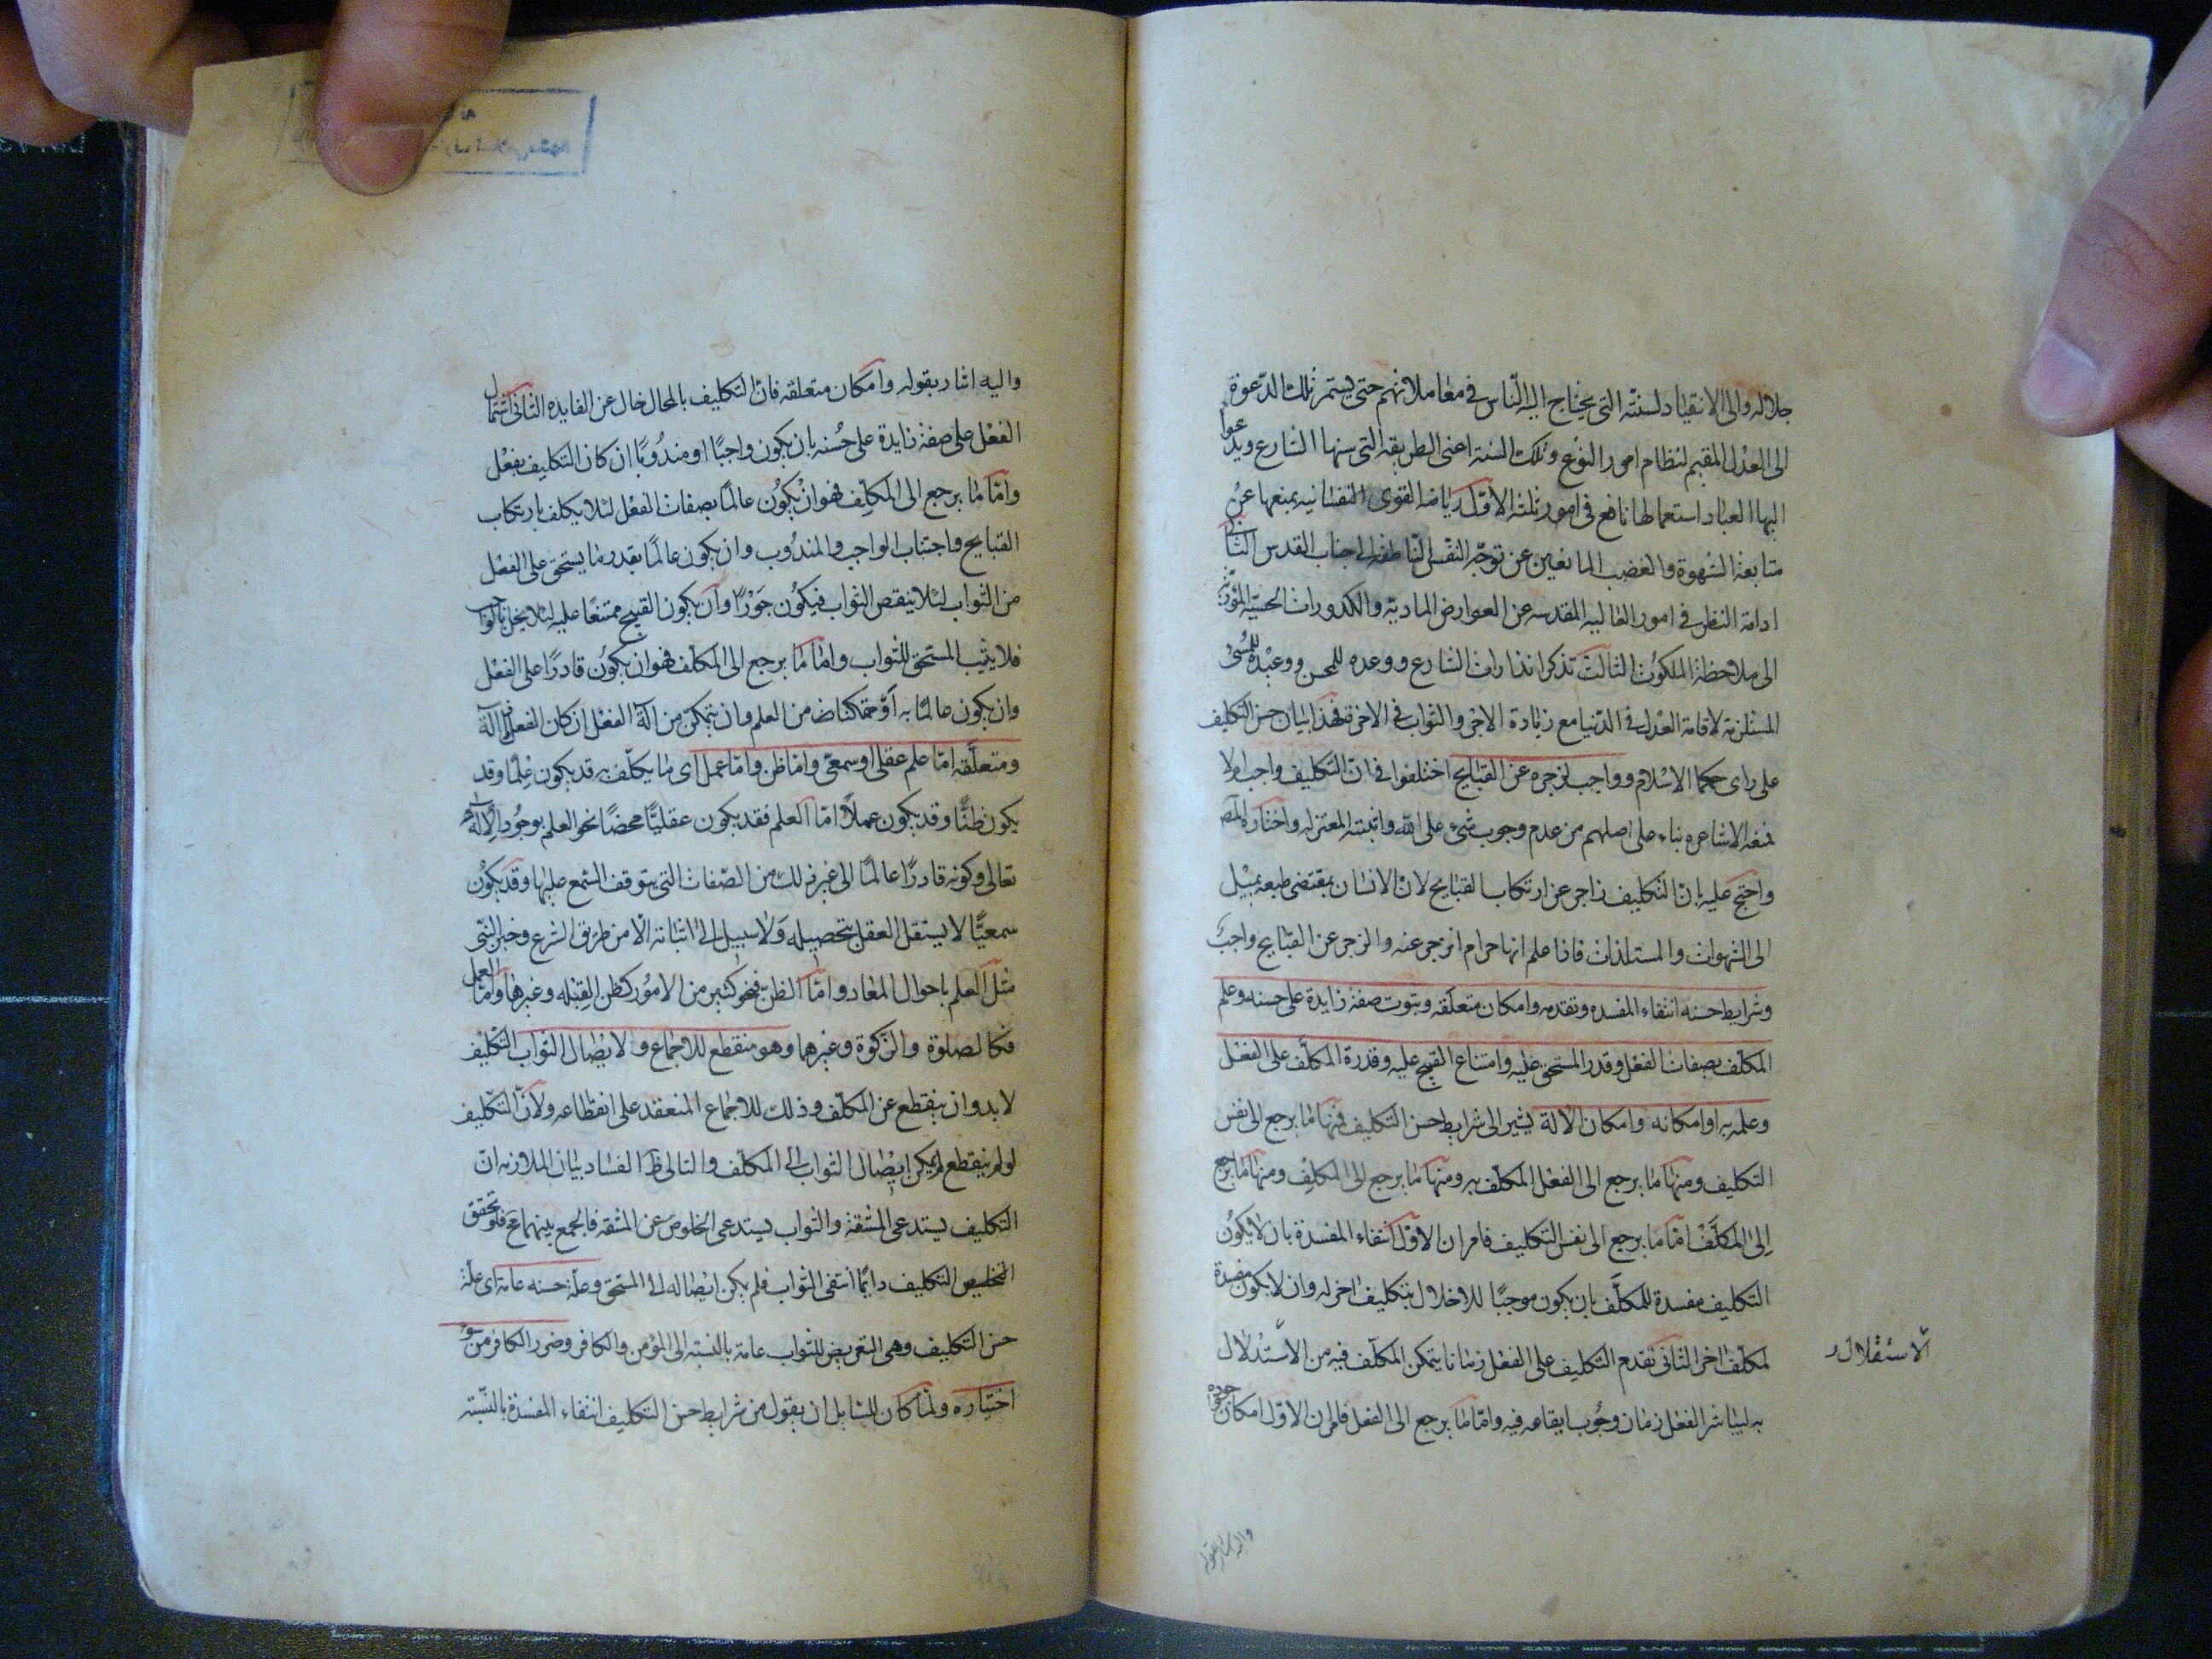 جلاله والى الانقياد لسنته التى يحتاج اليه الناس فى معاملاتهم حتى يستمر تلك الدعوة
الى العدل المقيم لنظام امور النوع وتلك السنة اعنى الطريقة التى سنها الشارع ويدعوا
اليها العباد استعمالها نافع فى امور ثلثة الاول رياضة القوى النفسانيه بمنعها عن
متابعة الشهوة والغضب المانعين عن توجه النفس الناطقه الى جناب القدس الثانى
ادامة النظر فى امور العاليه المقدسه عن العوارض الماديّة والكدورات الحسيّة المؤديّة
الى ملاحظة الملكوت الثالث تذكر انذارات الشارع ووعده للمحسن ووعيده للمسئ
المستلزمة لاقامة العدل فى الدنيا مع زيادة الاجر والثواب فى الاخرة فهذا بيان حسن التكليف
على راى حكما الاسلام وواجب لزجره عن القبايح اختلفوا فى ان التكليف واجب اولا
فمنعه الاشاعره بناء على اصلهم من عدم وجوب شئ على الله واثبته المعتزله واختاره المص
واحتج عليه بان التكليف زاجر عن ارتكاب القبايح لان الانسان بمقتضى طبعه يميل
الى الشهوات والمستلذات فاذا علم انها حرام انزجر عنه والزجر عن القبايح واجب
وشرايط حسنه انتفاء المفسده وتقدمه وامكان متعلقه وثبوت صفة زايدة على حسنه وعلم
المكلف بصفات الفعل وقدر المستحق عليه وامتناع القبيح عليه وقدرة المكلف على الفعل
وعلمه به او امكانه وامكان الالة يشير الى شرايط حسن التكليف فمنها ما يرجع الى نفس
التكليف ومنها ما يرجع الى الفعل المكلف به ومنها ما يرجع الى المكلِف ومنها ما يرجع
الى المكلَّف امّا ما يرجع الى نفس التكليف فامران الاول انتفاء المفسدة بان لا يكون
التكليف مفسدة للمكلَّف بان يكون موجبًا للاخلال بتكليف اخر له وان لا يكون مفسدة
لمكلف اخر الثانى تقدم التكليف على الفعل زمانا يتمكن المكلف فيه من الاستدلال
الاستقلال
به ليباشر الفعل زمان وجوب ايقاعه فيه وامّا ما يرجع الى الفعل فامران الاول امكان وجوده
واليه اشار بقوله
واليه اشار بقوله وامكان متعلقه فان التكليف بالمحال خال عن الفايده الثانى اشتمال
الفعل على صفة زايدة على حسنه بان يكون واجبًا او مندوبًا ان كان التكليف بفعل
وامّا ما يرجع الى المكلِف فهو ان يكون عالمًا بصفات الفعل لئلا يكلف بارتكاب
القبايح واجتناب الواجب والمندوب وان يكون عالمًا بقدر ما يستحق على الفعل
من الثواب لئلا ينقص الثواب فيكون جورًا وان يكون القبيح ممتنعًا عليه لئلا يخل بالواجب
فلا يثيب المستحق للثواب وامّا ما يرجع الى المكلَف فهو ان يكون قادرًا على الفعل
وان يكون عالمًا به او متمكنا من العلم وان يتمكن من آلة الفعل ان كان الفعل ذا آلة
ومتعلقه امّا علم عقلى او سمعى وامّا ظن وامّا عمل اى ما يكلف به قد يكون علمًا وقد
يكون ظنًّا وقد يكون عملاً امّا العلم فقد يكون عقليًّا محضًا نحو العلم بوجود الاله
تعالى وكونه قادرًا عالمًا الى غير ذلك من الصفات التى يتوقف السمع عليها وقد يكون
سمعيًّا لا يستقل العقل بتحصيله ولا سبيل الى اثباته الا من طريق الشرع وخبر النبى
مثل العلم باحوال المعاد وامّا الظن فنحو كثير من الامور كظن القبله وغيرها وامّا العمل
فكالصلوة والزكوة وغيرهما وهو منقطع للاجماع ولايصال الثواب التكليف
لا بد وان ينقطع عن المكلف وذلك للاجماع المنعقد على انقطاعه ولان التكليف
لو لم ينقطع لم يمكن ايصال الثواب الى المكلف والتالى ظ الفساد بيان الملازمه ان
التكليف يستدعى المشقة والثواب يستدعى الخلوص عن المشقه فالجمع بينهما مح فلو تحقق
التكليف دايمًا انتفى الثواب فلم يكن ايصاله الى المستحق وعلة حسنه عامة اى علة
حسن التكليف وهى التعريض للثواب عامة بالنسبة الى المؤمن والكافر وضرر الكافر من سوء
اختياره ولمّا كان للسايل ان يقول من شرايط حسن التكليف انتفاء المفسدة بالنسبة